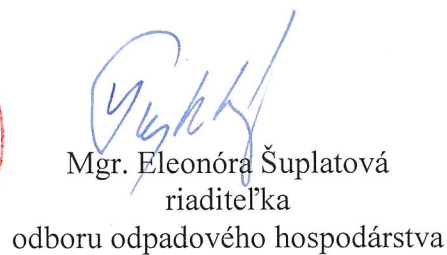 Mgr. Eleonóra Šuplatová
riaditeľka
odboru odpadového hospodárstva